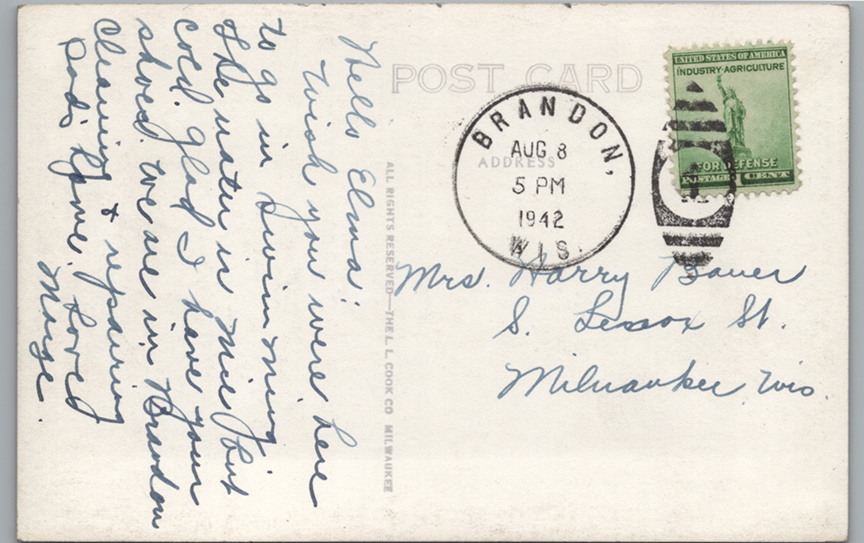 Hello Elma!
Wish you were here
to go in swimming.
The water is nice but
cold. Glad I have your
shoes. We are in Brandon
cleaning & repairing
Love,
Marge.
POST CARD
ADDRESS
ALL RIGHTS RESERVED—THE L. L. COOK CO MILWAUKEE
BRANDON,
AUG 8
5 PM
1942
WIS.
UNITED STATES OF AMERICA
INDUSTRY·AGRICULTURE
FOR DEFENSE
POSTAGE CENT
Mrs. Harry Bauer
S. St.
Milwaukee Wis.